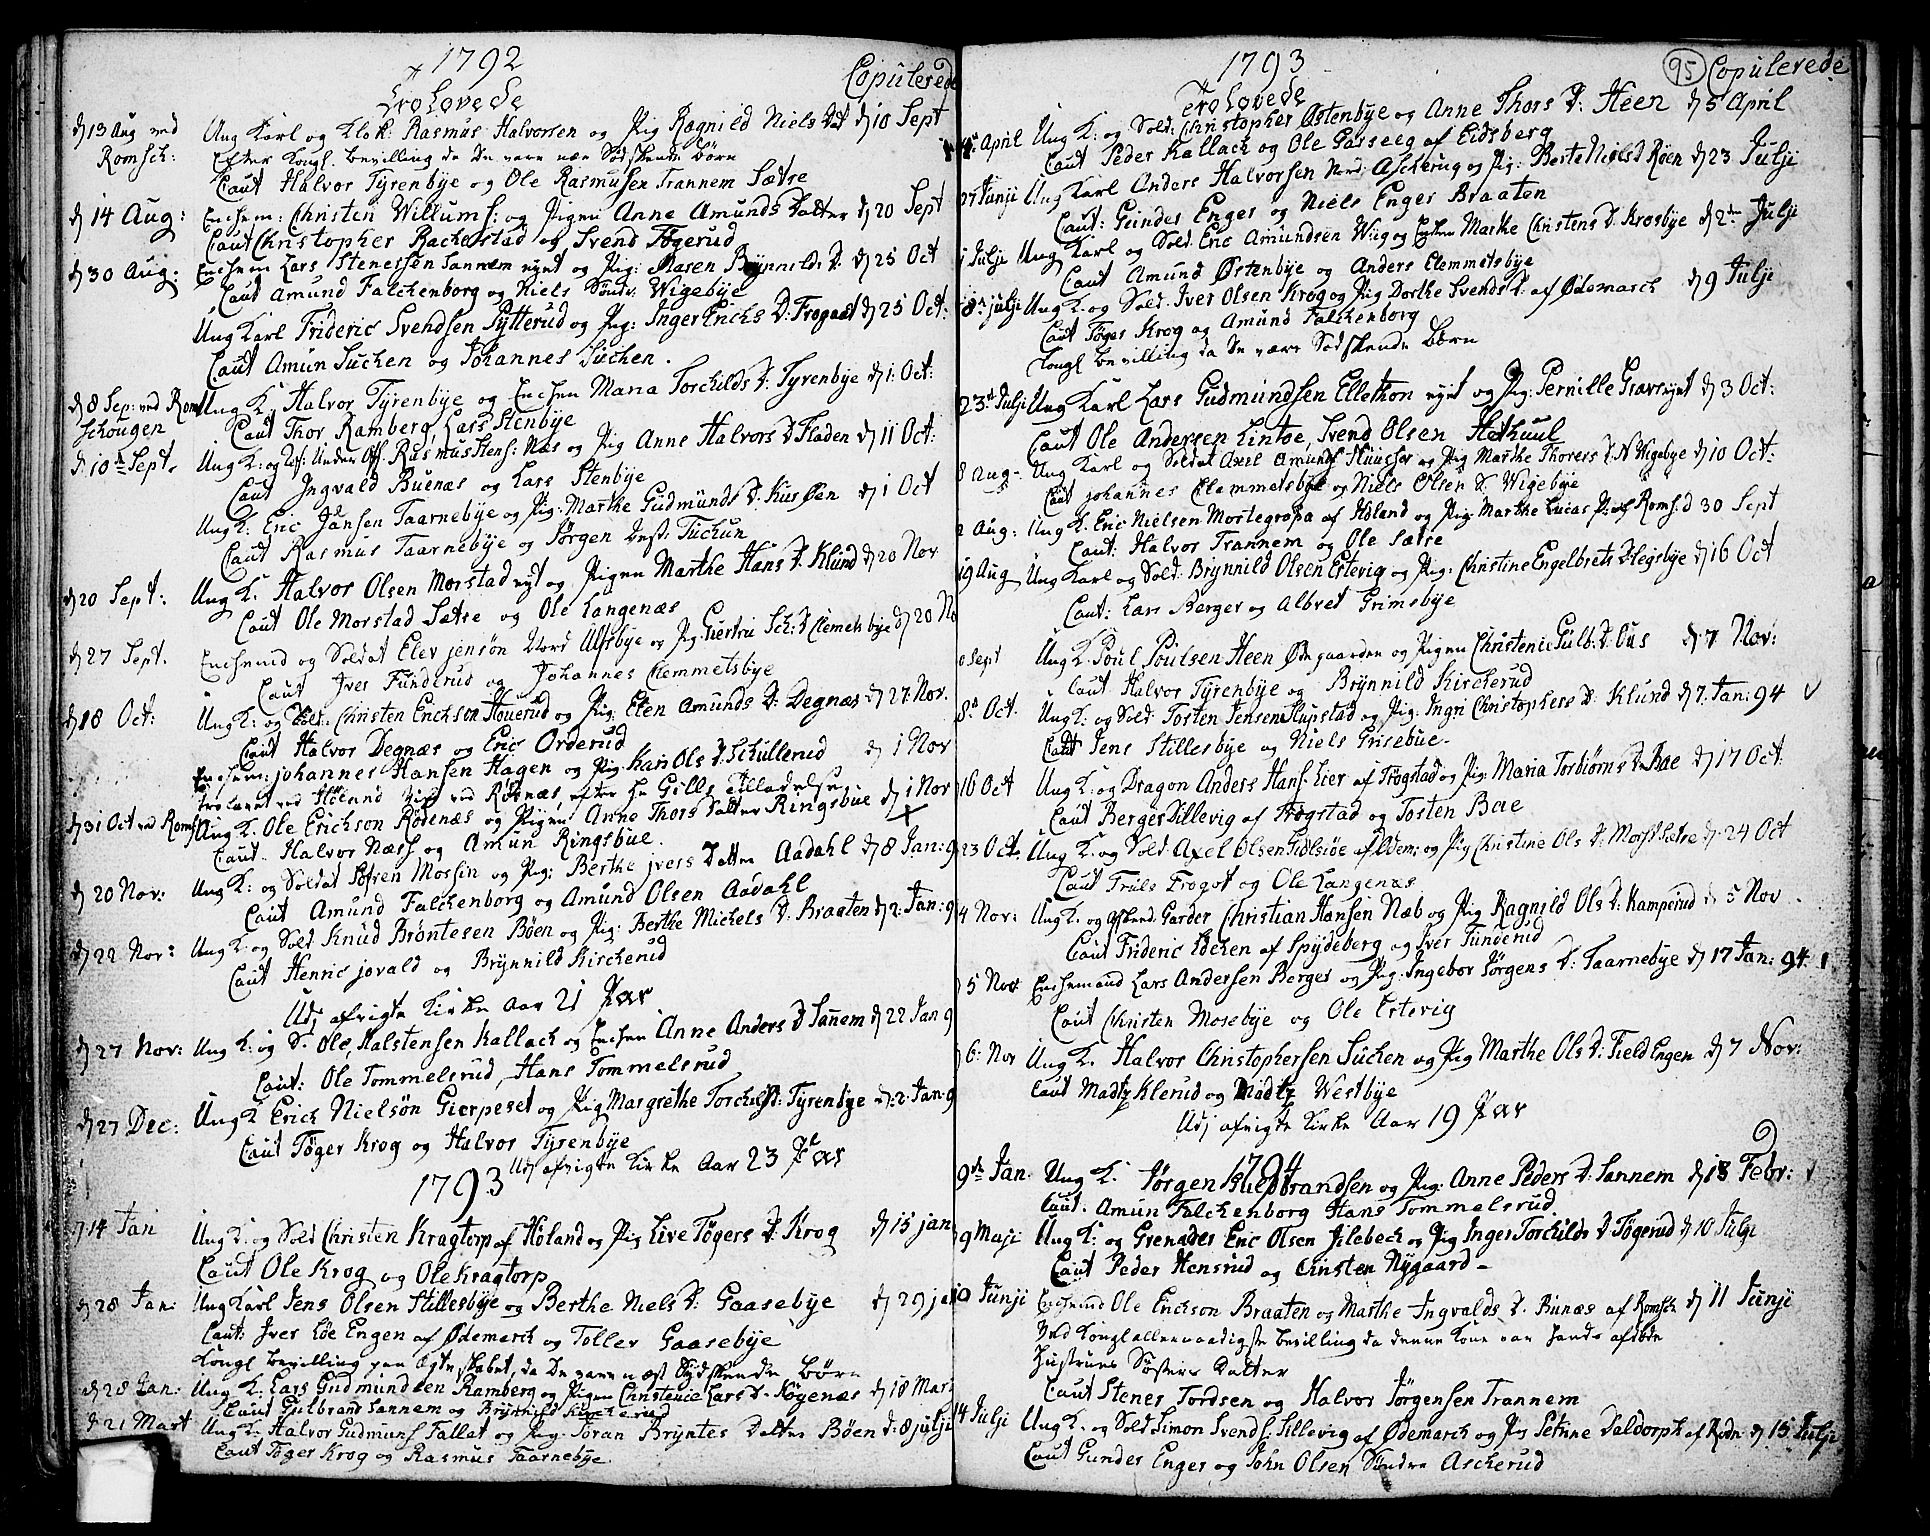 1792
Trolovede
Copulerede
d 13 Aug ved Ung Karl og Klok: Rasmus Halvorsen og Pig Ragnild Niels Dat d 10 Sept
Romsch: Efter Kongl. bevilling da de vare nær Sødskende børn
Caut Halvor Tyrenbye og Ole Rasmusen Trannem Sætre
d 14 Aug: Enchem: Christen Willums: og Pigen Anne Amunds Datter d 20 Sept
Caut Christopher Rachestad og Svend Tøgerud
d 30 Aug: Enchem Lars Stenersen Sannem og Pig: Maren Brynnilds D. d 25 Oct
Caut Amund Falchenborg og Niels Søndr. Wigebye
Ung Karl Frideric Svendsen Pytterud og Pig: Inger Erichs D: Frogaet d 25 Oct:
Caut Amun Tuchen og Johannes Tuchen.
d 8 Sep: ved Roms Ung K. Halvor Tyrenbye og Enchen Maria Torchilds D: Tyrenbye d 1: Oct:
Schougen Caut Thor Ramberg, Lars Stenbye
d 10 Sept. Ung K: og Under Off. Rasmus Hens: Næs og Pig Anne Halvors D Fladen d 11 Oct:
Caut Ingvald Buenæs og Lars Stenbye
Ung K: Eric Jansen Taarnebye og Pig: Marthe Gudmunds D. Kusøen d 1 Oct
Caut Rasmus Taarnebye og Jørgen Tuchun
d 20 Sept: Ung K. Halvor Olsen Morstad og Pigen Marthe Hans D Klund d 20 Nov
Caut Ole Morstad Sætre og Ole Langenæs
d 27 Sept. Enchemd og Soldat Elev jensøn Nord Ulfsbye og Pig. Giertru Sch: D Clemetsbye d 20 No
Caut Iver Funderud og Johannes Clemmetsbye
d 18 Oct: Ung K: og Christen Erichson Houerud og Pig: Elen Amunds D: Degnæs d 27 Nov.
Caut Halvor Degnæs og Eric Orderud
Enchem: johannes Hansen Hagen og Pig Kari Ols D. Schullerud d 1 Nov
Trolovet ved Hølennd ved Rødnæs, efter Hr Gills Tilladelse
d 31 Oct ved Roms Ung K. Ole Erichson Rødenæs og Pigen Anne Thors Datter Ringsbue d 1 Nov
Caut Halvor Næss og Amun Ringsbue.
Ung K: og Soldat Søfren Mossin og Pig: Berthe jvers Datter Aadahl d 8 Jan: 9
d 20 Nov: Caut Amund Falchenborg og Amund Olsen Aadahl
d 22 Nov: Ung K: og Sold Knud Brøntesen Bøen og Pig: Berthe Michels D. Braaten d 2: Jan: 9
Caut Henric jovald og Brynnild Kircherud
Udj afvigte Kirke Aar 21 Par
d 27 Nov: Ung K: og S. Ole Halstensen Kallach og Enchen Anne Anders D Sannem d 22 Jan 9
Caut: Ole Tommelsrud, Hans Tommelsrud
d 27 Dec: Ung K Erich Nielsøn Gierpeset og Pig Margrethe Torchilds D: Tyrenbye d: 2: Jan: 9
Caut Tøger Krog og Halvor Tyrenbye
Udj afvigte Kirke Aar 23 Par
1793
d 14 Jan Ung K: og Sold Christen Kragtorp af Høland og Pig Live Tøgers D. Krog d 15 jan:
Caut Ole Krog og Ole Kragtorp
d 28 Jan: Ung Karl Jens Olsen Stillesbye og Berthe Niels D: Gaasebye d 29 jan
Caut: Iver Løe Engen af Ødemarch og Toller Gaasebye
Kongl bevilling paa Ægteskabet, da De vare næst Sydskende børn
d 28 Jan: Ung K: Lars Gudmundsen Ramberg og Pigen Christence Lars D. Høyenæs d 18 Mart
Caut Gulbrand Sannem og Brynnild Kircherud
d 21 Mart Ung K. Halvor Gudmuns Fallet og Pig: Joran Bryntes Datter Bøen d: 8 julji
Caut Tøger Krog og Rasmus Taarnebye
1793
Trolovede
95 Copulerede
4 April Ung K: og Sold: Christopher Østenbye og Anne Thors D: Heen d 5 April
Caut Peder Kallach og Ole Gasseeg af Eidsberg
27 Junji Ung Karl Anders Halvorsen Nord Ascherug og Pig: Berte Niels D Røen d 23 Julji
Caut: Gunder Enger og Niels Enger Braaten
1 Julji Ung Karl og Sold Eric Amundsen Wiig og Marthe Christens D. Krosbye d 2 Julji
Caut Amund Østenbye og Anders Clemmetsbye
8 julji Ung K: og Sold. Iver Olsen Krog og Pig Dorthe Svends D. af Ødemarch d 9 Julji
Caut Tøger Krog og Amund Falchenborg
Kongl bevilling da De vare Sødskende børn
23 Julji Ung Karl Lars Gudmundsen Ellethon og Pig: Pernille d 3 Oct:
Caut Ole Andersen Lintoe, Svend Olsen Hethuul
8 Aug Ung Karl og Soldat Axel Amunds Huuser og Pig Marthe Thorers D. N Wigebye d 10 Oct:
Caut johannes Clemmetsbye og Niels Olsen S. Wigebye
2 Aug: Ung K. Eric Nielsen Mortegropa af Høland og Pig Marthe Lucas D: af Roms. d 30 Sept
Caut: Halvor Trannem og Ole Sætre
19 Aug Ung Karl og Sold: Brynnild Olsen Estevig og Pig: Christine Engelbrets D Hegsbye d 16 Oct
Caut: Lars Berger og Albret Grimsbye
0 Sept Ung K. Poul Poulsen Heen Ødegaarden og Pigen Christence Gulb: D. Ous d 7 Nov:
Caut Halvor Tyrenbye og Brynnild Kircherud
8 Oct. Ung K: og Sold Tosten Jensen Slupstad og Pig: Ingri Christophers D: Klund d 7. Jan: 94
Caut Jens Stillesbye og Niels Grisebue
16 Oct Ung K: og Dragon Anders Hans: Lier af Trøgstad og Pig: Maria Torbiørns D Bae d 17 Oct:
Caut Berger Dillevig af Trøgstad og Tosten Bae
23 Oct. Ung K: og Sold Axel Olsen Giølsiøe af Ødem: og Pig Christine Ols D: Morst Sætre d. 24 Oct
Caut Truls Frogot og Ole Langenæs
4 Nov: Ung K: og Garder Christian Hansen Næb og Pig Ragnild Ols D: Kamperud d 5 Nov
Caut Frideric Edchen af Spydeberg og Iver Funderud
5 Nov Enchemand Lars Andersen Berger og Pig. Ingebor Jørgens D. Taarnebye d 17 Jan: 94
Caut Christen Mosebye og Ole Estevig
6: Nov Ung K. Halvor Christophersen Tuchen og Pig Marthe Ols D: Field Engen d 7 Nov:
Caut Madtz Klerud og Madtz Westbye
Udj afvigte Kirke Aar 19 Par
1794
9 Jan. Ung K. Jørgen Hildbrandsen og Pig: Anne Peders D. Sannem d 18 Febr:
Caut. Amun Falchenborg Hans Tommelsrud
9 Maji Ung K: og Grenader Eric Olsen Jilebech og Pig Inger Torchilds D. Tøgerud d 10 Julji
Caut Peder Hensrud og Christen Nygaard
10 Junji Enchemd Ole Erichson Braaten og Marthe Ingvalds D. Bunæs af Romsch d 11 Junji
Ved Kongl allernaadigste bevilling da denne Kone var hands afdøde
Hustrues Søsters Datter
Caut Stener Tordsen og Halvor Jørgensen Trannem
14 Julji Ung K. og Sold Simon Svends: Tillevig af Ødemarch og Pig Daldorph af Rødn d 15 Julji
Caut Gunder Enger og John Olsen Søndre Ascherud